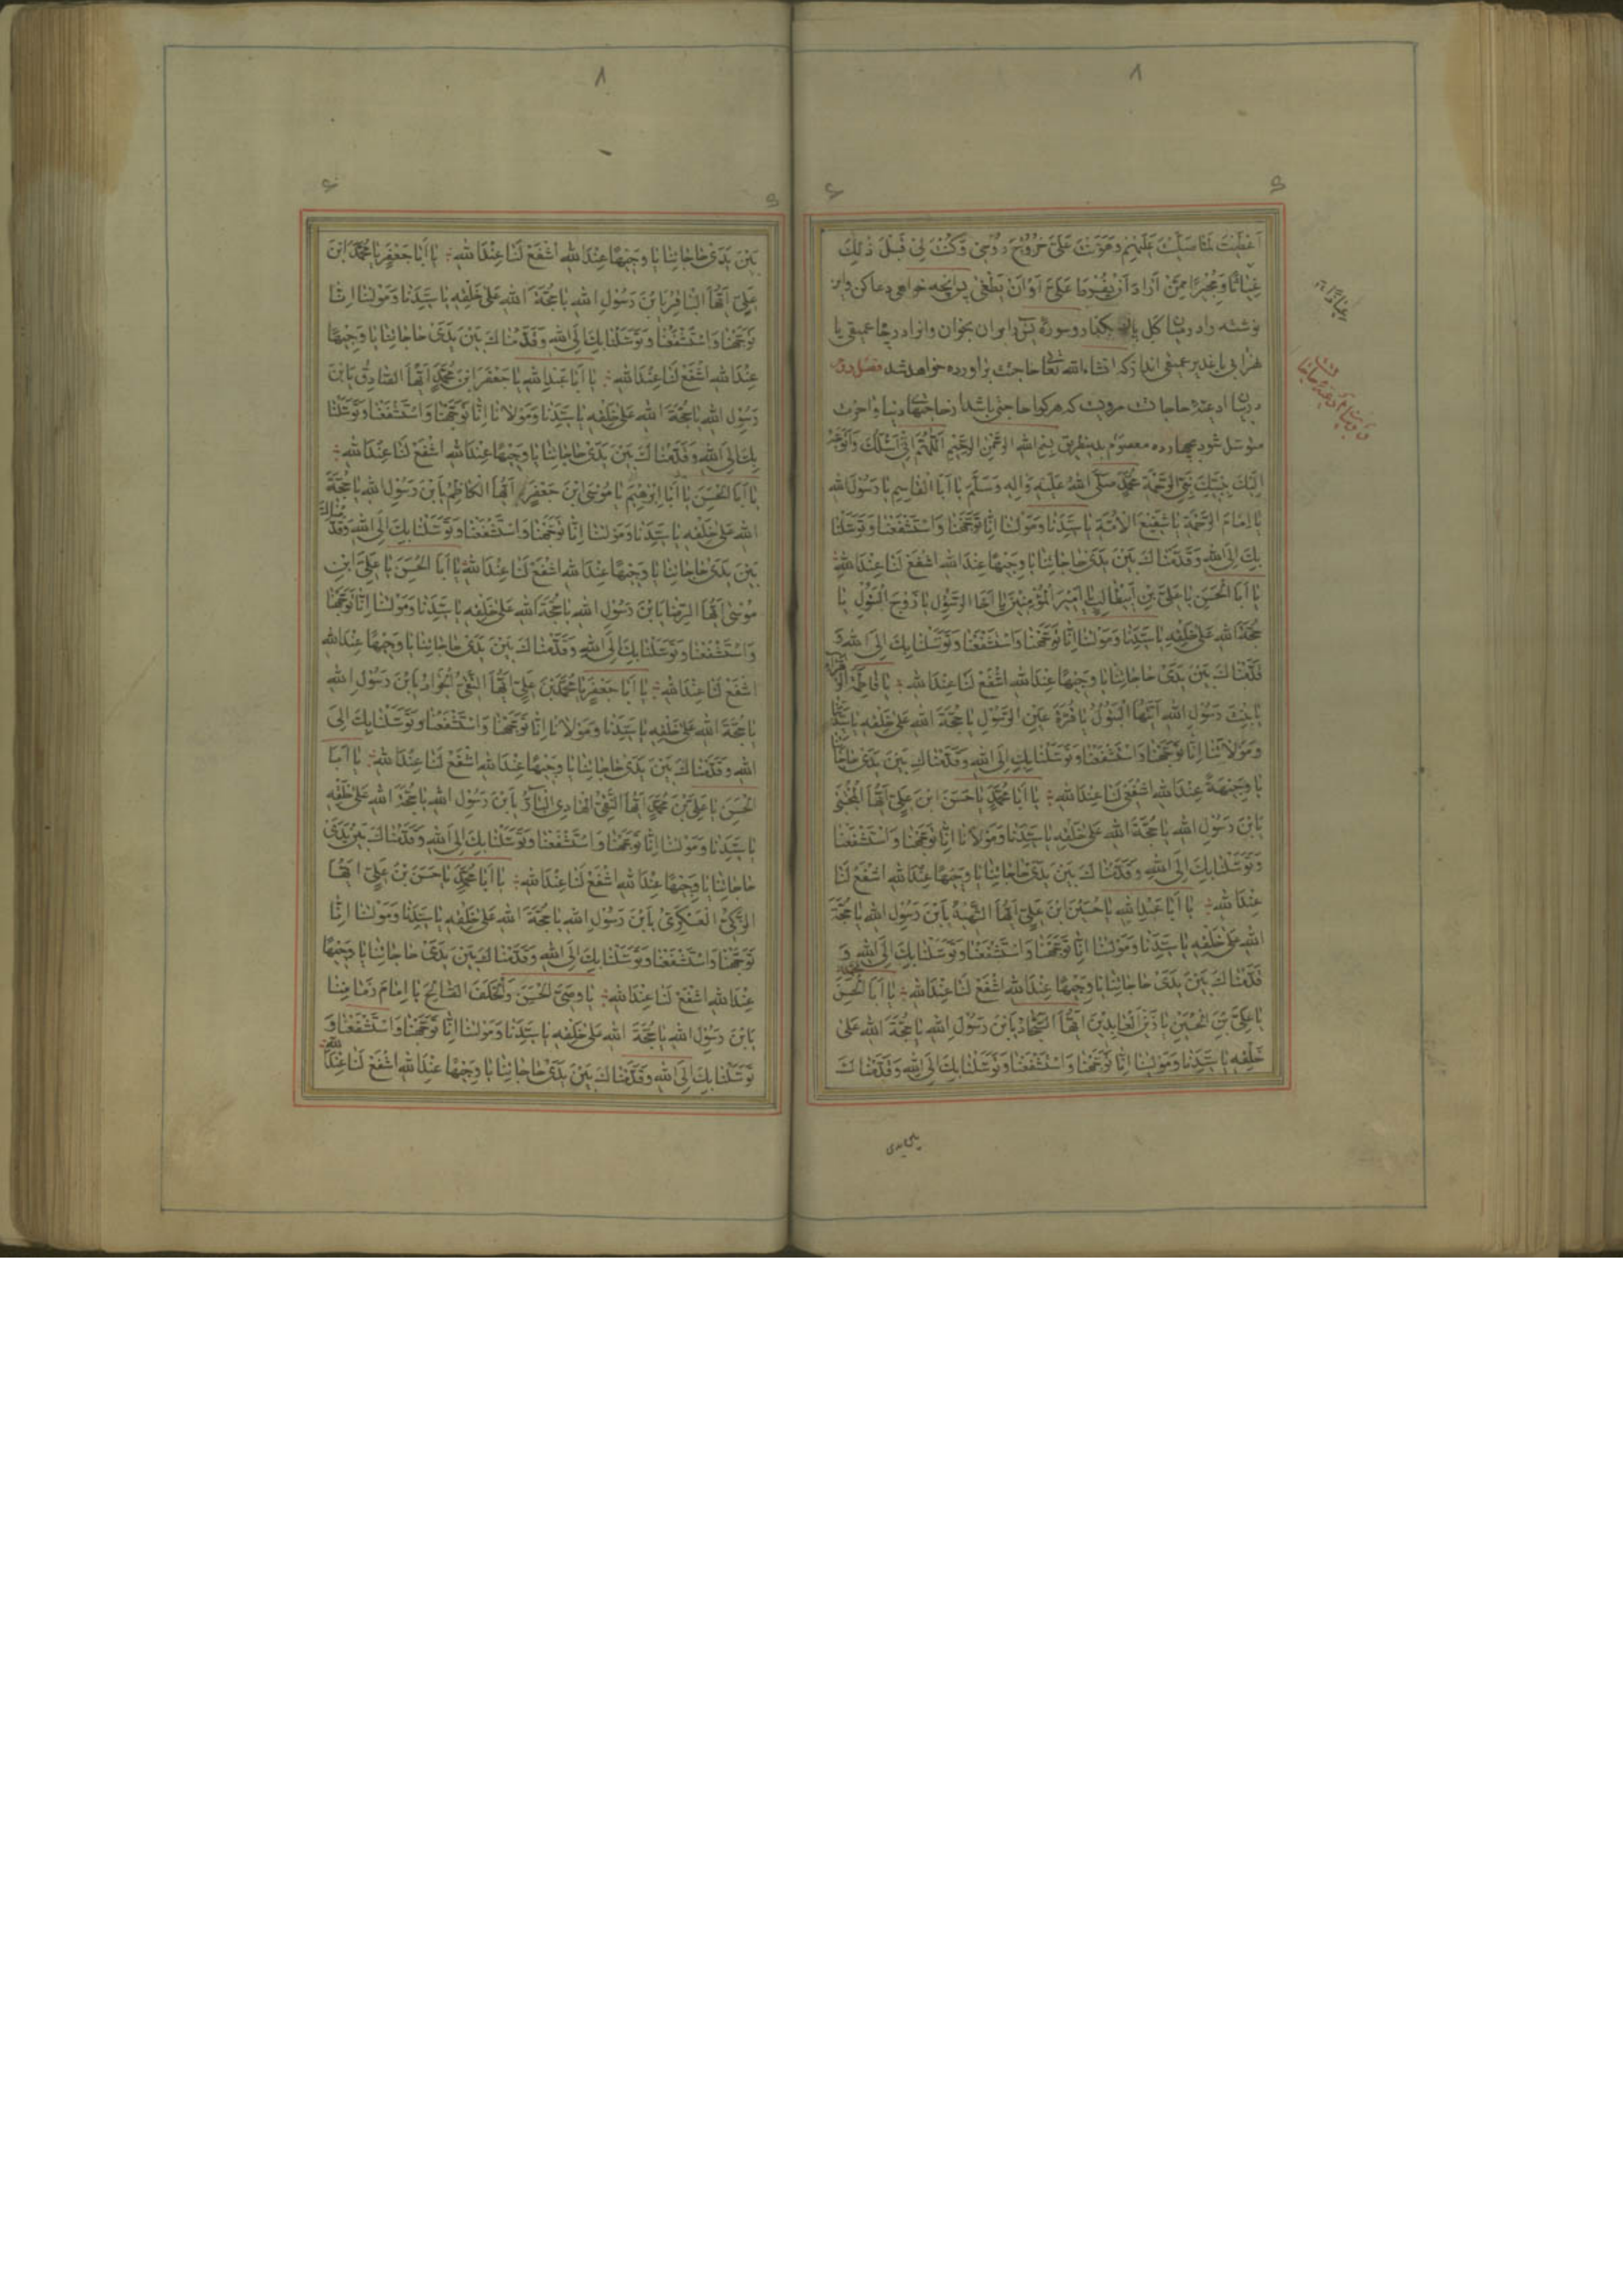 ٨
اَعْطَيْتَ لِمَا صَلَّيْتَ عَلَيْهِمْ وَهَوَّنْتَ عَلَيَّ خُرُوْجَ رُوْحِيْ وَكُنْتَ لِيْ قَبْلَ ذٰلِكَ
غِيَاثًا وَمُجِيْرًا مِمَّنْ اَرَادَ اَنْ يَفْرُطَ عَلَيَّ اَوْ اَنْ يَطْغٰى پس انچه خواهى دعا كن و اين
نوشته را در ميان گل پاك بگذار و سوره يس بر ان بخوان وانرا در چاه عميقى يا
نهر ابى يا غدير عميقى انداز كه انشاءالله تعا حاجت براورده خواهد شد فصل دوم
در بيان ادعيه حاجات مرويست كه هر كرا حاجتى باشد از حاجتهاى دنيا و اخرت
متوسل شود بچهارده معصوم بدينطريق بسم الله الرحمن الرحيم اَللّٰهُمَّ اِنِّيْ اَسْئَلُكَ وَاَتَوَجَّهُ
اِلَيْكَ بِنَبِيِّكَ نَبِيِّ الرَّحْمَةِ مُحَمَّدٍ صَلَّى اللهُ عَلَيْهِ وَاٰلِهِ وَسَلَّمَ يَا اَبَا الْقَاسِمِ يَا رَسُوْلَ اللهِ
يَا اِمَامَ الرَّحْمَةِ يَا شَفِيْعَ الْاُمَّةِ يَا سَيِّدَنَا وَمَوْلٰنَا اِنَّا تَوَجَّهْنَا وَاسْتَشْفَعْنَا وَتَوَسَّلْنَا
بِكَ اِلَى اللهِ وَقَدَّمْنَاكَ بَيْنَ يَدَيْ حَاجَاتِنَا يَا وَجِيْهًا عِنْدَ اللهِ اشْفَعْ لَنَا عِنْدَ اللهِ
يَا اَبَا الْحَسَنِ يَا عَلِيَّ بْنَ اَبِيْطَالِبٍ يَا اَمِيْرَ الْمُؤْمِنِيْنَ يَا اَخَا الرَّسُوْلِ يَا زَوْجَ الْبَتُوْلِ يَا
حُجَّةَ اللهِ عَلٰى خَلْقِهِ يَا سَيِّدَنَا وَمَوْلٰنَا اِنَّا تَوَجَّهْنَا وَاسْتَشْفَعْنَا وَتَوَسَّلْنَا بِكَ اِلَى اللهِ وَ
قَدَّمْنَاكَ بَيْنَ يَدَيْ حَاجَاتِنَا يَا وَجِيْهًا عِنْدَ اللهِ اشْفَعْ لَنَا عِنْدَ اللهِ يَا فَاطِمَةُ الزَّهْرَاءُ
يَا بِنْتَ رَسُوْلِ اللهِ اَيَّتُهَا الْبَتُوْلُ يَا قُرَّةَ عَيْنِ الرَّسُوْلِ يَا حُجَّةَ اللهِ عَلٰى خَلْقِهِ يَا سَيِّدَتَنَا
وَمَوْلَاتَنَا اِنَّا تَوَجَّهْنَا وَاسْتَشْفَعْنَا وَتَوَسَّلْنَا بِكِ اِلَى اللهِ وَقَدَّمْنَاكِ بَيْنَ يَدَيْ حَاجَاتِنَا
يَا وَجِيْهَةً عِنْدَ اللهِ اشْفَعِيْ لَنَا عِنْدَ اللهِ يَا اَبَا مُحَمَّدٍ يَا حَسَنَ ابْنَ عَلِيٍّ اَيُّهَا الْمُجْتَبٰى
يَابْنَ رَسُوْلِ اللهِ يَا حُجَّةَ اللهِ عَلٰى خَلْقِهِ يَا سَيِّدَنَا وَمَوْلَانَا اِنَّا تَوَجَّهْنَا وَاسْتَشْفَعْنَا
وَتَوَسَّلْنَا بِكَ اِلَى اللهِ وَقَدَّمْنَاكَ بَيْنَ يَدَيْ حَاجَاتِنَا يَا وَجِيْهًا عِنْدَ اللهِ اشْفَعْ لَنَا
عِنْدَ اللهِ يَا اَبَا عَبْدِ اللهِ يَا حُسَيْنَ ابْنَ عَلِيٍّ اَيُّهَا الشَّهِيْدُ يَابْنَ رَسُوْلِ اللهِ يَا حُجَّةَ
اللهِ عَلٰى خَلْقِهِ يَا سَيِّدَنَا وَمَوْلٰنَا اِنَّا تَوَجَّهْنَا وَاسْتَشْفَعْنَا وَتَوَسَّلْنَا بِكَ اِلَى اللهِ وَ
قَدَّمْنَاكَ بَيْنَ يَدَيْ حَاجَاتِنَا يَا وَجِيْهًا عِنْدَ اللهِ اشْفَعْ لَنَا عِنْدَ اللهِ يَا اَبَا الْحَسَنِ
يَا عَلِيَّ بْنَ الْحُسَيْنِ يَا زَيْنَ الْعَابِدِيْنَ اَيُّهَا السَّجَّادُ يَابْنَ رَسُوْلِ اللهِ يَا حُجَّةَ اللهِ عَلٰى
خَلْقِهِ يَا سَيِّدَنَا وَمَوْلٰنَا اِنَّا تَوَجَّهْنَا وَاسْتَشْفَعْنَا وَتَوَسَّلْنَا بِكَ اِلَى اللهِ وَقَدَّمْنَاكَ
بين يدى
٨
بَيْنَ يَدَيْ حَاجَاتِنَا يَا وَجِيْهًا عِنْدَ اللهِ اشْفَعْ لَنَا عِنْدَ اللهِ يَا اَبَا جَعْفَرٍ يَا مُحَمَّدَ ابْنَ
عَلِيٍّ اَيُّهَا الْبَاقِرُ يَابْنَ رَسُوْلِ اللهِ يَا حُجَّةَ اللهِ عَلٰى خَلْقِهِ يَا سَيِّدَنَا وَمَوْلٰنَا اِنَّا
تَوَجَّهْنَا وَاسْتَشْفَعْنَا وَتَوَسَّلْنَا بِكَ اِلَى اللهِ وَقَدَّمْنَاكَ بَيْنَ يَدَيْ حَاجَاتِنَا يَا وَجِيْهًا
عِنْدَ اللهِ اشْفَعْ لَنَا عِنْدَ اللهِ يَا اَبَا عَبْدِ اللهِ يَا جَعْفَرَ ابْنَ مُحَمَّدٍ اَيُّهَا الصَّادِقُ يَابْنَ
رَسُوْلِ اللهِ يَا حُجَّةَ اللهِ عَلٰى خَلْقِهِ يَا سَيِّدَنَا وَمَوْلَانَا اِنَّا تَوَجَّهْنَا وَاسْتَشْفَعْنَا وَتَوَسَّلْنَا
بِكَ اِلَى اللهِ وَقَدَّمْنَاكَ بَيْنَ يَدَيْ حَاجَاتِنَا يَا وَجِيْهًا عِنْدَ اللهِ اشْفَعْ لَنَا عِنْدَ اللهِ
يَا اَبَا الْحَسَنِ يَا اَبَا اِبْرٰهِيْمَ يَا مُوْسَى ابْنَ جَعْفَرٍ اَيُّهَا الْكَاظِمُ يَابْنَ رَسُوْلِ اللهِ يَا حُجَّةَ
اللهِ عَلٰى خَلْقِهِ يَا سَيِّدَنَا وَمَوْلٰنَا اِنَّا تَوَجَّهْنَا وَاسْتَشْفَعْنَا وَتَوَسَّلْنَا بِكَ اِلَى اللهِ وَقَدَّمْنَاكَ
بَيْنَ يَدَيْ حَاجَاتِنَا يَا وَجِيْهًا عِنْدَ اللهِ اشْفَعْ لَنَا عِنْدَ اللهِ يَا اَبَا الْحَسَنِ يَا عَلِيَّ ابْنَ
مُوْسٰى اَيُّهَا الرِّضَا يَابْنَ رَسُوْلِ اللهِ يَا حُجَّةَ اللهِ عَلٰى خَلْقِهِ يَا سَيِّدَنَا وَمَوْلٰنَا اِنَّا تَوَجَّهْنَا
وَاسْتَشْفَعْنَا وَتَوَسَّلْنَا بِكَ اِلَى اللهِ وَقَدَّمْنَاكَ بَيْنَ يَدَيْ حَاجَاتِنَا يَا وَجِيْهًا عِنْدَ اللهِ
اشْفَعْ لَنَا عِنْدَ اللهِ يَا اَبَا جَعْفَرٍ يَا مُحَمَّدَ بْنَ عَلِيٍّ اَيُّهَا التَّقِيُّ الْجَوَادُ يَابْنَ رَسُوْلِ اللهِ
يَا حُجَّةَ اللهِ عَلٰى خَلْقِهِ يَا سَيِّدَنَا وَمَوْلَانَا اِنَّا تَوَجَّهْنَا وَاسْتَشْفَعْنَا وَتَوَسَّلْنَا بِكَ اِلَى
اللهِ وَقَدَّمْنَاكَ بَيْنَ يَدَيْ حَاجَاتِنَا يَا وَجِيْهًا عِنْدَ اللهِ اشْفَعْ لَنَا عِنْدَ اللهِ يَا اَبَا
الْحَسَنِ يَا عَلِيَّ بْنَ مُحَمَّدٍ اَيُّهَا النَّقِيُّ الْهَادِي يَابْنَ رَسُوْلِ اللهِ يَا حُجَّةَ اللهِ عَلٰى خَلْقِهِ
يَا سَيِّدَنَا وَمَوْلٰنَا اِنَّا تَوَجَّهْنَا وَاسْتَشْفَعْنَا وَتَوَسَّلْنَا بِكَ اِلَى اللهِ وَقَدَّمْنَاكَ بَيْنَ يَدَيْ
حَاجَاتِنَا يَا وَجِيْهًا عِنْدَ اللهِ اشْفَعْ لَنَا عِنْدَ اللهِ يَا اَبَا مُحَمَّدٍ يَا حَسَنَ بْنَ عَلِيٍّ اَيُّهَا
الزَّكِيُّ الْعَسْكَرِيُّ يَابْنَ رَسُوْلِ اللهِ يَا حُجَّةَ اللهِ عَلٰى خَلْقِهِ يَا سَيِّدَنَا وَمَوْلٰنَا اِنَّا
تَوَجَّهْنَا وَاسْتَشْفَعْنَا وَتَوَسَّلْنَا بِكَ اِلَى اللهِ وَقَدَّمْنَاكَ بَيْنَ يَدَيْ حَاجَاتِنَا يَا وَجِيْهًا
عِنْدَ اللهِ اشْفَعْ لَنَا عِنْدَ اللهِ يَا وَصِيَّ الْحَسَنِ وَالْخَلَفَ الصَّالِحَ يَا اِمَامَ زَمَانِنَا
يَابْنَ رَسُوْلِ اللهِ يَا حُجَّةَ اللهِ عَلٰى خَلْقِهِ يَا سَيِّدَنَا وَمَوْلٰنَا اِنَّا تَوَجَّهْنَا وَاسْتَشْفَعْنَا وَ
تَوَسَّلْنَا بِكَ اِلَى اللهِ وَقَدَّمْنَاكَ بَيْنَ يَدَيْ حَاجَاتِنَا يَا وَجِيْهًا عِنْدَ اللهِ اشْفَعْ لَنَا عِنْدَ اللهِ